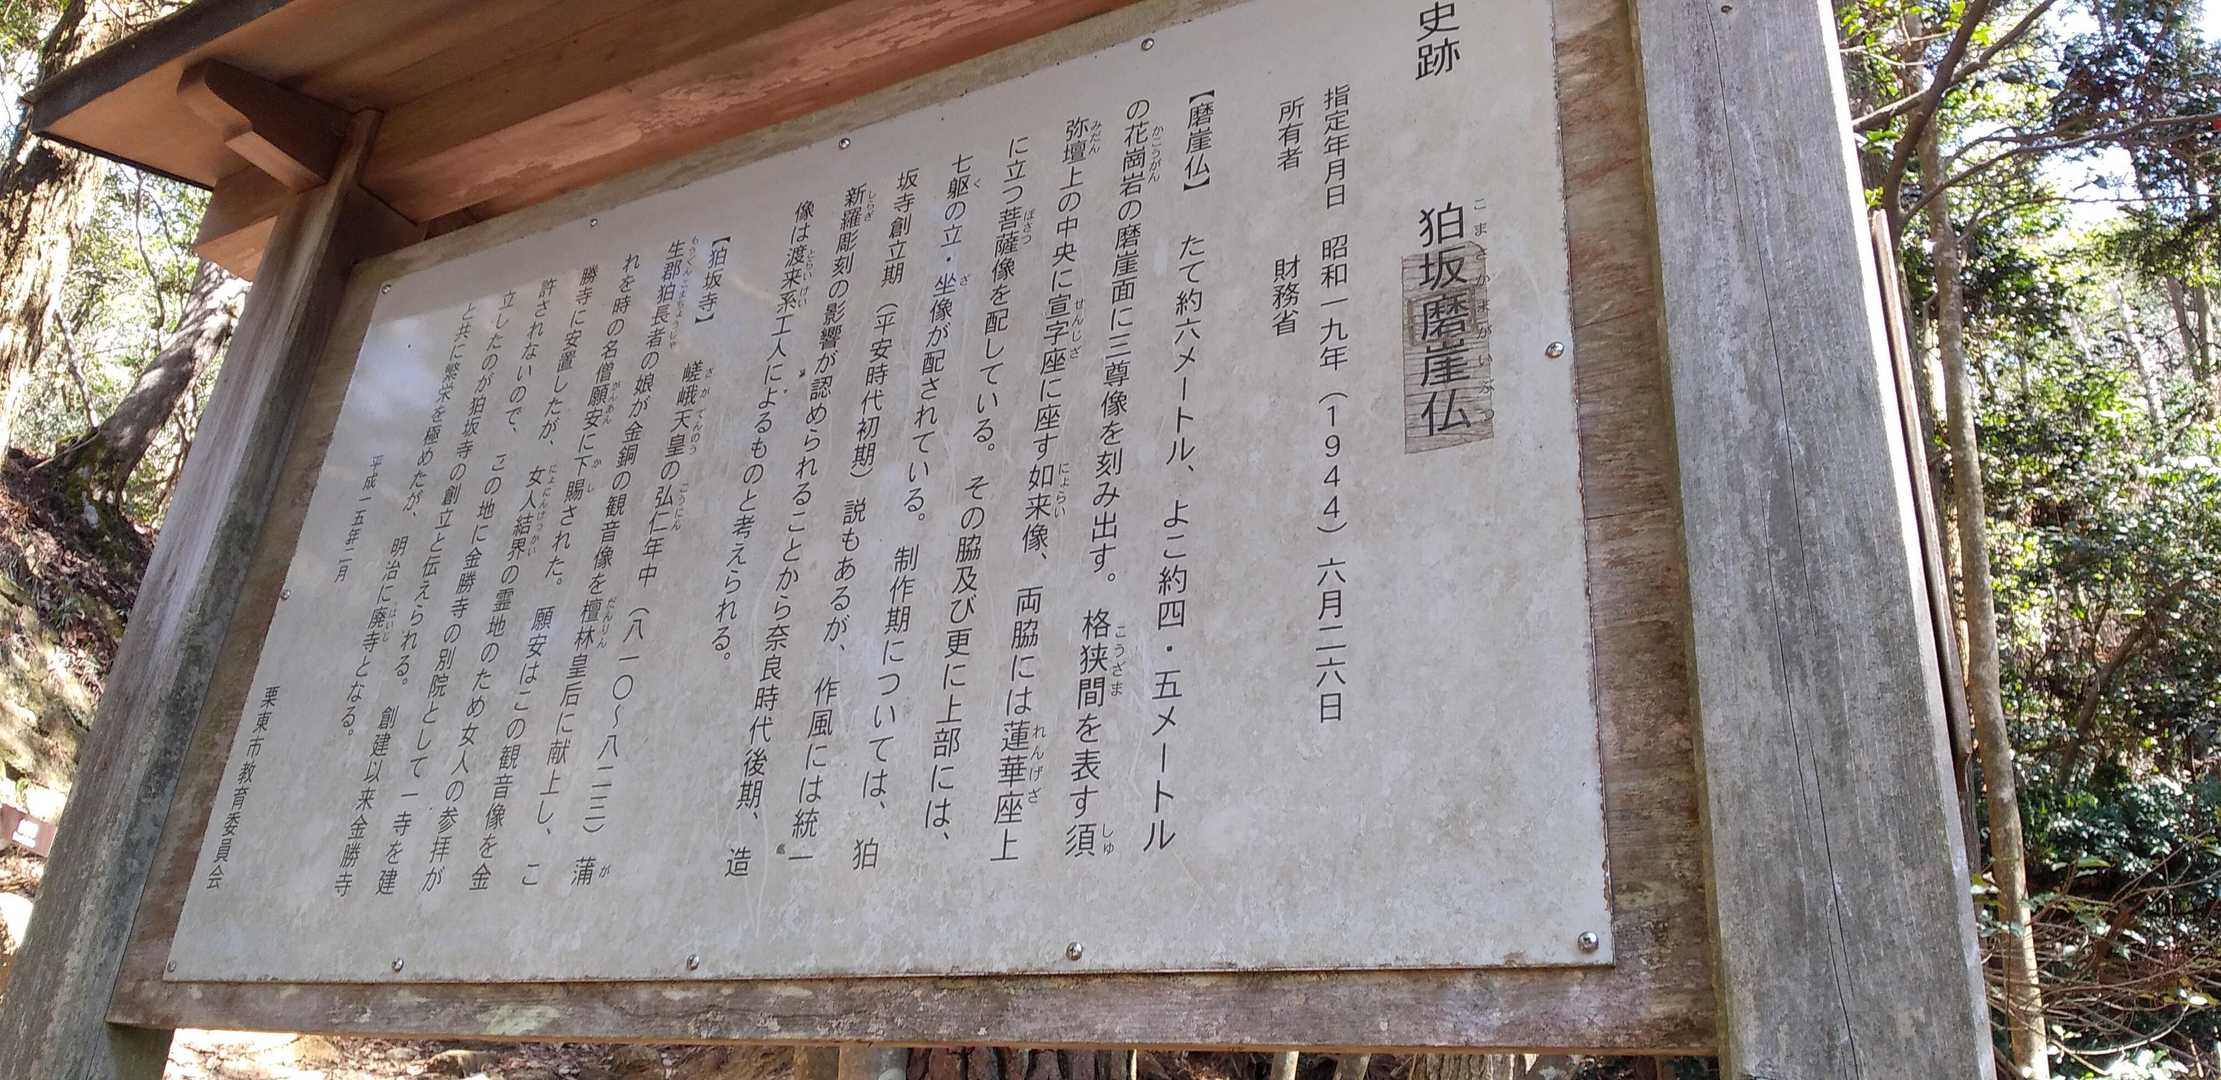 史跡　狛坂磨崖仏
こまさかまがいぶつ
指定年月日　昭和一九年（1944）六月二六日
所有者　　　財務省
【磨崖仏】　たて約六メートル、よこ約四・五メートル
の花崗岩の磨崖面に三尊像を刻み出す。格狭間を表す須
かこうがん　こうざま　しゅ
弥壇上の中央に宣字座に座す如来像、両脇には蓮華座上
みだん　せんじざ　にょらい　れんげざ
に立つ菩薩像を配している。その脇及び更に上部には、
ぼさつ
七躯の立・坐像が配されている。制作期については、狛
く　ざ
坂寺創立期（平安時代初期）説もあるが、作風には統一
新羅彫刻の影響が認められることから奈良時代後期、造
しらぎ
像は渡来系工人によるものと考えられる。
とらいけい
【狛坂寺】　嵯峨天皇の弘仁年中（八一〇～八二三）蒲
さがてんのう　こうにん　が
生郡狛長者の娘が金銅の観音像を檀林皇后に献上し、こ
もうぐんこまちょうじゃ　だんりん
れを時の名僧願安に下賜された。願安はこの観音像を金
がんあん　かし
勝寺に安置したが、女人結界の霊地のため女人の参拝が
にょにんけっかい
許されないので、この地に金勝寺の別院として一寺を建
立したのが狛坂寺の創立と伝えられる。創建以来金勝寺
と共に繁栄を極めたが、明治に廃寺となる。
はいじ
平成一五年二月
栗東市教育委員会